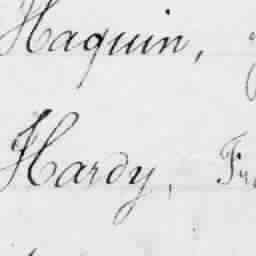 Haquin,
Hardy,